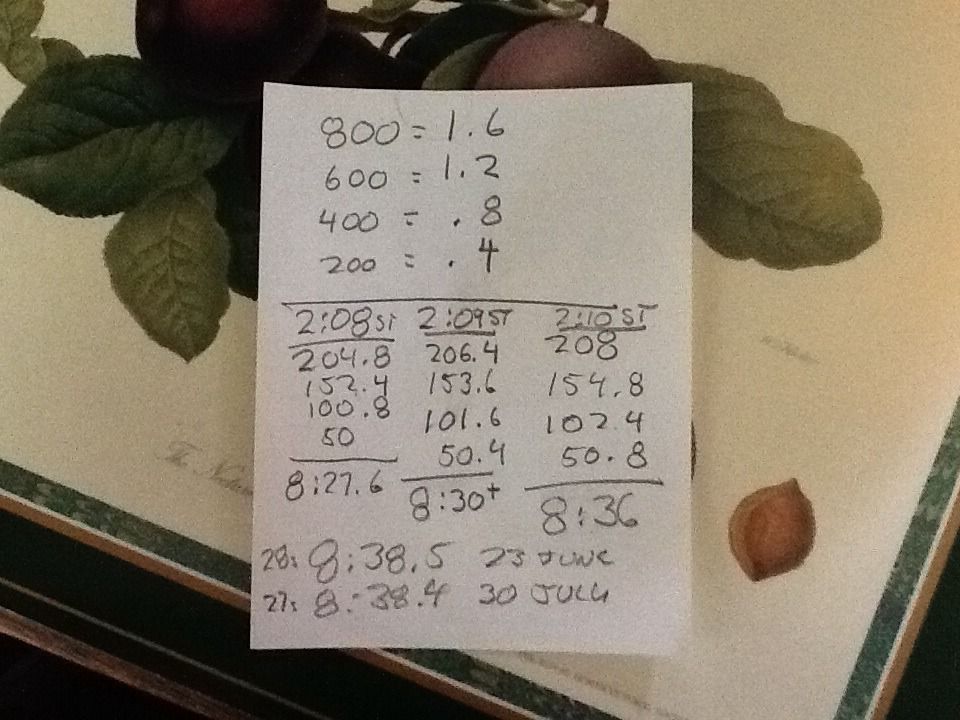 800 = 1.6
600 = 1.2
400 = .8
200 = .4
2:08 ST 2:09 ST 2:10 ST
204.8 206.4 208
152.4 153.6 154.8
100.8 101.6 102.4
50 50.4 50.8
8:27.6 8:30+ 8:36
28: 8:38.5 23 JUNE
27: 8:38.4 30 JULY